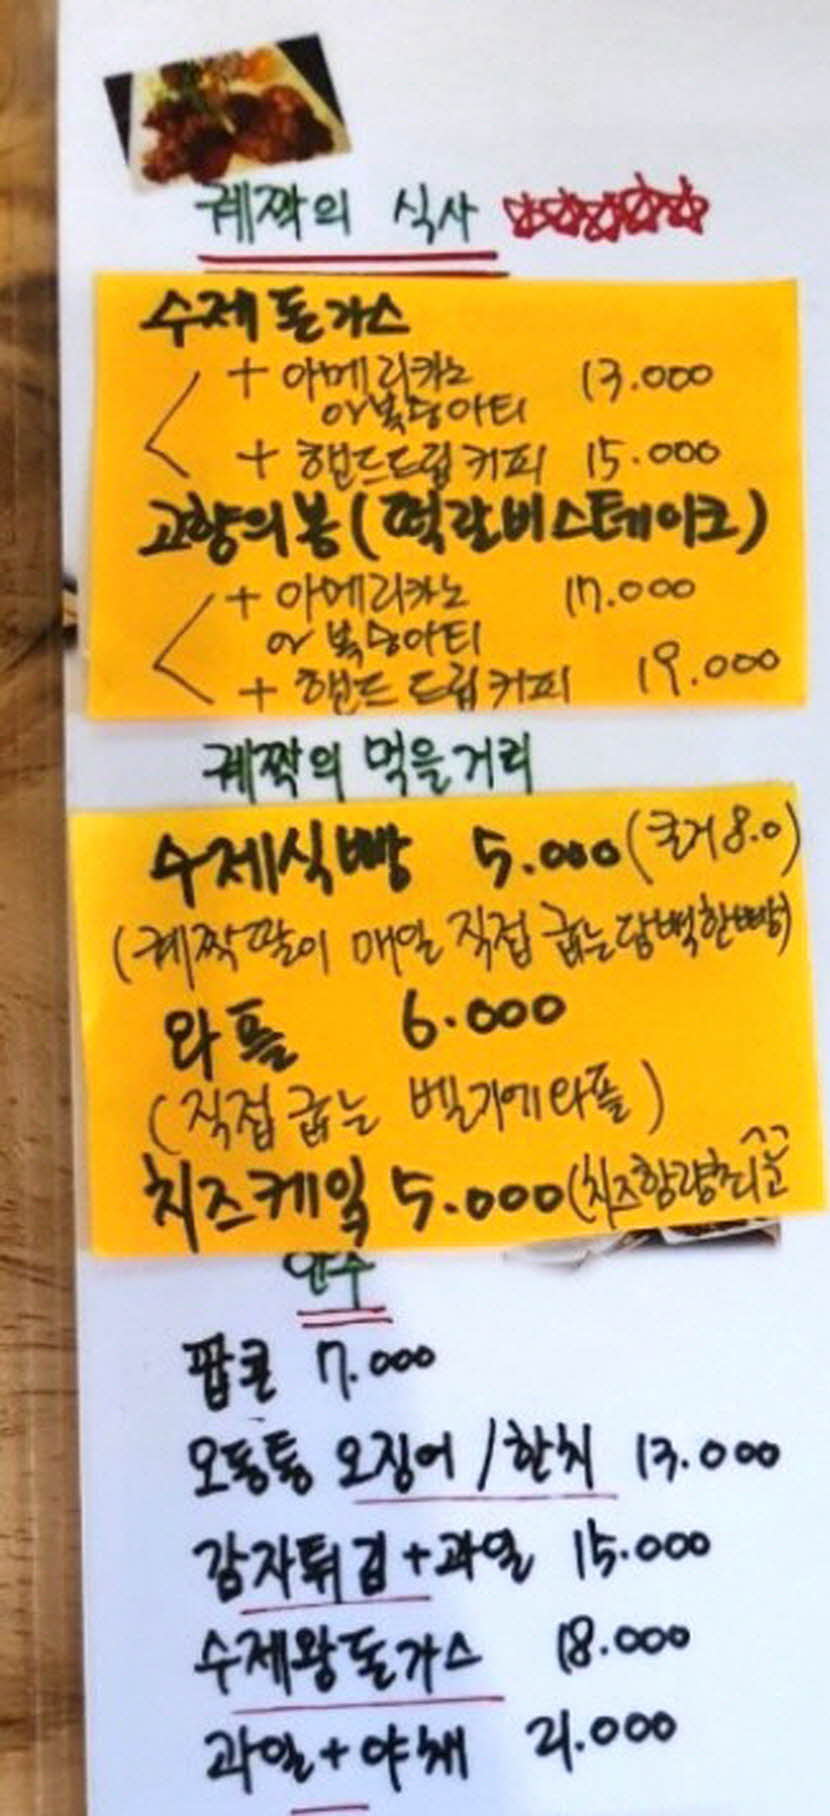 궤짝의 식사 ☆☆☆☆☆
수제돈가스
+ 아메리카노 13.000
or 복숭아티
+ 핸드드립커피 15.000
고향의봄(떡갈비스테이크)
+ 아메리카노 17.000
or 복숭아티
+ 핸드드립커피 19.000
궤짝의 먹을거리
수제식빵 5.000(큰거8.0)
(궤짝딸이 매일 직접 굽는 담백한빵)
와플 6.000
(직접 굽는 벨기에와플)
치즈케잌 5.000(치즈함량최고^^
안주
팝콘 7.000
오동통 오징어/한치 13.000
감자튀김+과일 15.000
수제왕돈가스 18.000
과일+야채 21.000